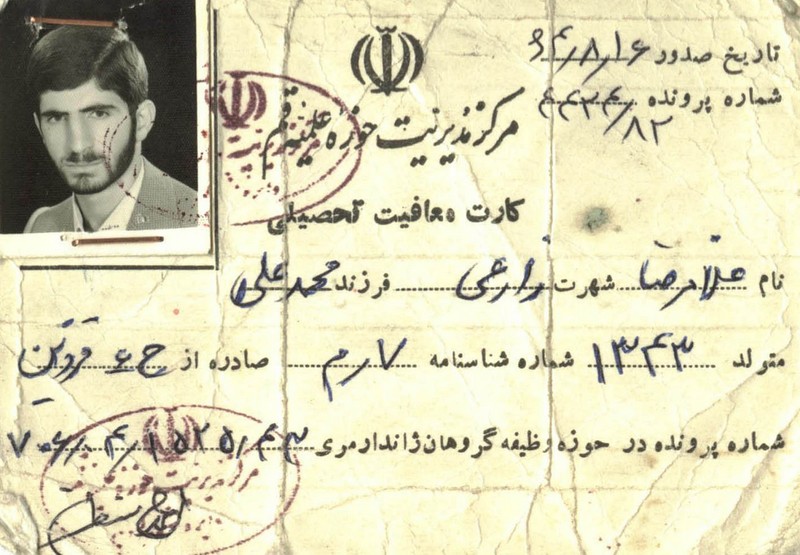 تاریخ صدور ۶۴/۸/۱۶
شماره پرونده ۴۴۲۴/۸۲
مرکز مدیریت حوزه علمیه قم
کارت معافیت تحصیلی
نام غلامرضا شهرت زارعی فرزند محمد علی
متولد ۱۳۴۳ شماره شناسنامه ۷ صادره از قزوین
شماره پرونده در حوزه وظیفه گروهان ژاندارمری